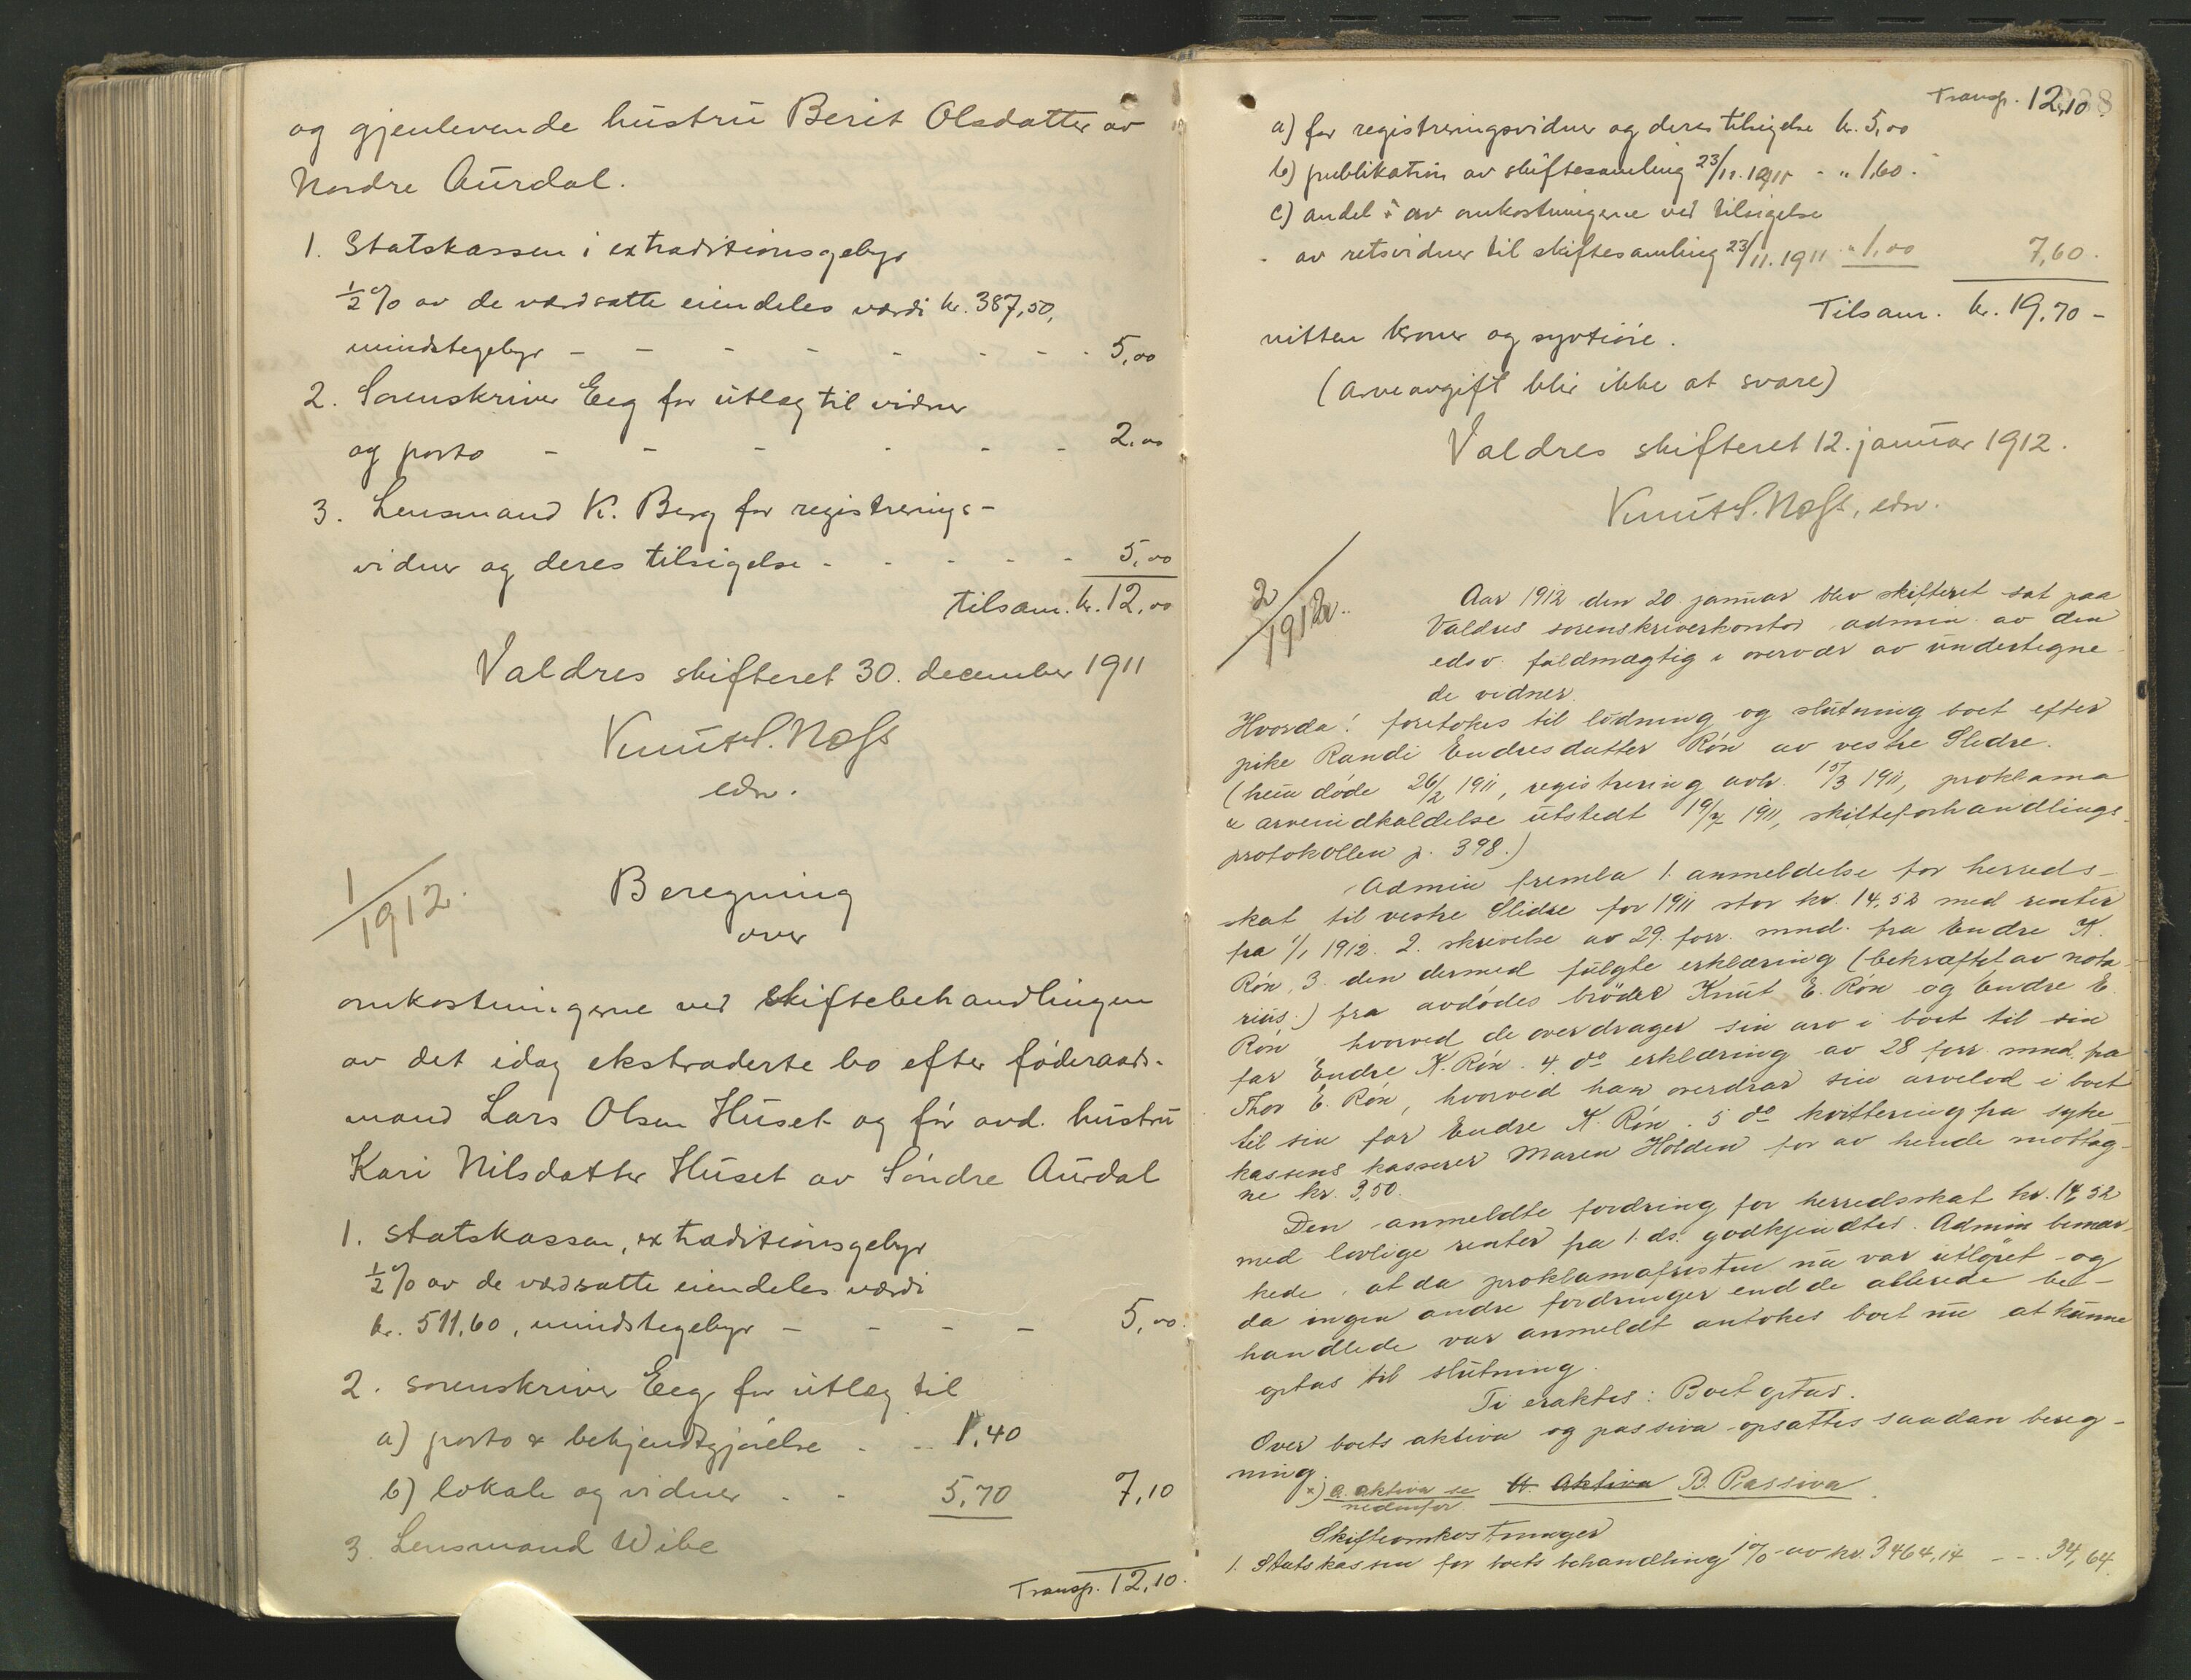 og gjenlevende hustru Berit Olsdatter av
Nordre Aurdal.
1. Statskassen i extraditionsgebyr
½ % av de værdsatte eiendeles værdi kr. 387,50,
mindstegebyr - - - - - - - 5,00
2. Sorenskriver Eeg for utlæg til vidner
og porto - - - - - - 2,00
3. Lensmand K. Berg for registrerings-
vidner og deres tilsigelse - - - - - 5,00
tilsam. kr. 12,00
Valdres skifteret 30. december 1911
Knut S. Næss
edsv.
1/1912.
Beregning
over
omkostningerne ved skiftebehandlingen
av det idag ekstraderte bo efter føderaads-
mand Lars Olsen Huset og før avd. hustru
Kari Nilsdatter Huset av Søndre Aurdal
1. Statskassen, extraditionsgebyr
½ % av de værdsatte eiendeles værdi
kr. 511,60, mindstegebyr - - - - 5,00.
2. sorenskriver Eeg for utlæg til
a) porto & bekjendtgjørelse - - 1,40
b) lokale og vidner - - 5,70 7,10
3. Lensmand Wibe
Transp. 12,10.
Transp. 12,10
a) for registreringsvidner og deres tilsigelse kr. 5,00
b) publikation av skiftesamling 23/11. 1911 - " 1,60.
c) andel i av omkostningerne ved tilsigelse
av retsvidner til skiftesamling 23/11. 1911 " 1,00 7,60.
Tilsam. kr. 19,70 -
nitten kroner og syvtiøre.
(arveavgift blir ikke at svare)
Valdres skifteret 12. januar 1912.
Knut S. Næss, edsv.
2/1912.
Aar 1912 den 20. januar blev skifteret sat paa
Valdres sorenskriverkontor admin. av den
edsv. fuldmægtig i overvær av undertegne-
de vidner.
Hvorda: foretokes til lodning og slutning boet efter
pike Randi Endresdatter Røn av vestre Slidre.
(hun døde 26/2 1911, registrering avh. 15/3 1911, proklama
& arveindkaldelse utstedt 19/7 1911, skifteforhandlings-
protokollen p. 398.)
Admin fremla 1. anmeldelse for herreds-
skat til vestre Slidre for 1911 stor kr. 14,52 med renter
fra 1/1 1912. 2. skrivelse av 29. forr. mnd. fra Endre K.
Røn, 3. den dermed fulgte erklæring (bekræftet av nota-
rius) fra avdødes brødre Knut E. Røn og Endre E.
Røn hvorved de overdrager sin arv i boet til sin
far Endre K. Røn. 4. do erklæring av 28 forr. mnd. fra
Thor E. Røn, hvorved han overdrar sin arvelod i boet
til sin far Endre K. Røn. 5 do kvittering fra syke-
kassens kasserer Maren Holden for av hende mottag-
ne kr. 3,50.
Den anmeldte fordring for herredsskat kr. 14,52
med lovlige renter fra 1. ds. godkjendtes. Admin bemær-
kede, at da proklamafristen nu var utløpet og
da ingen andre fordringer end de allerede be-
handlede var anmeldt antokes boet nu at kunne
optas til slutning.
Ti eraktes: Boet optas.
Over boets aktiva og passiva opsattes saadan bereg-
ning:
x) a. aktiva se nedenfor A. Aktiva B. Passiva
Skifteomkostninger
1. Statskassen for boets behandling 1% av kr. 3464,14 - - 34,64.